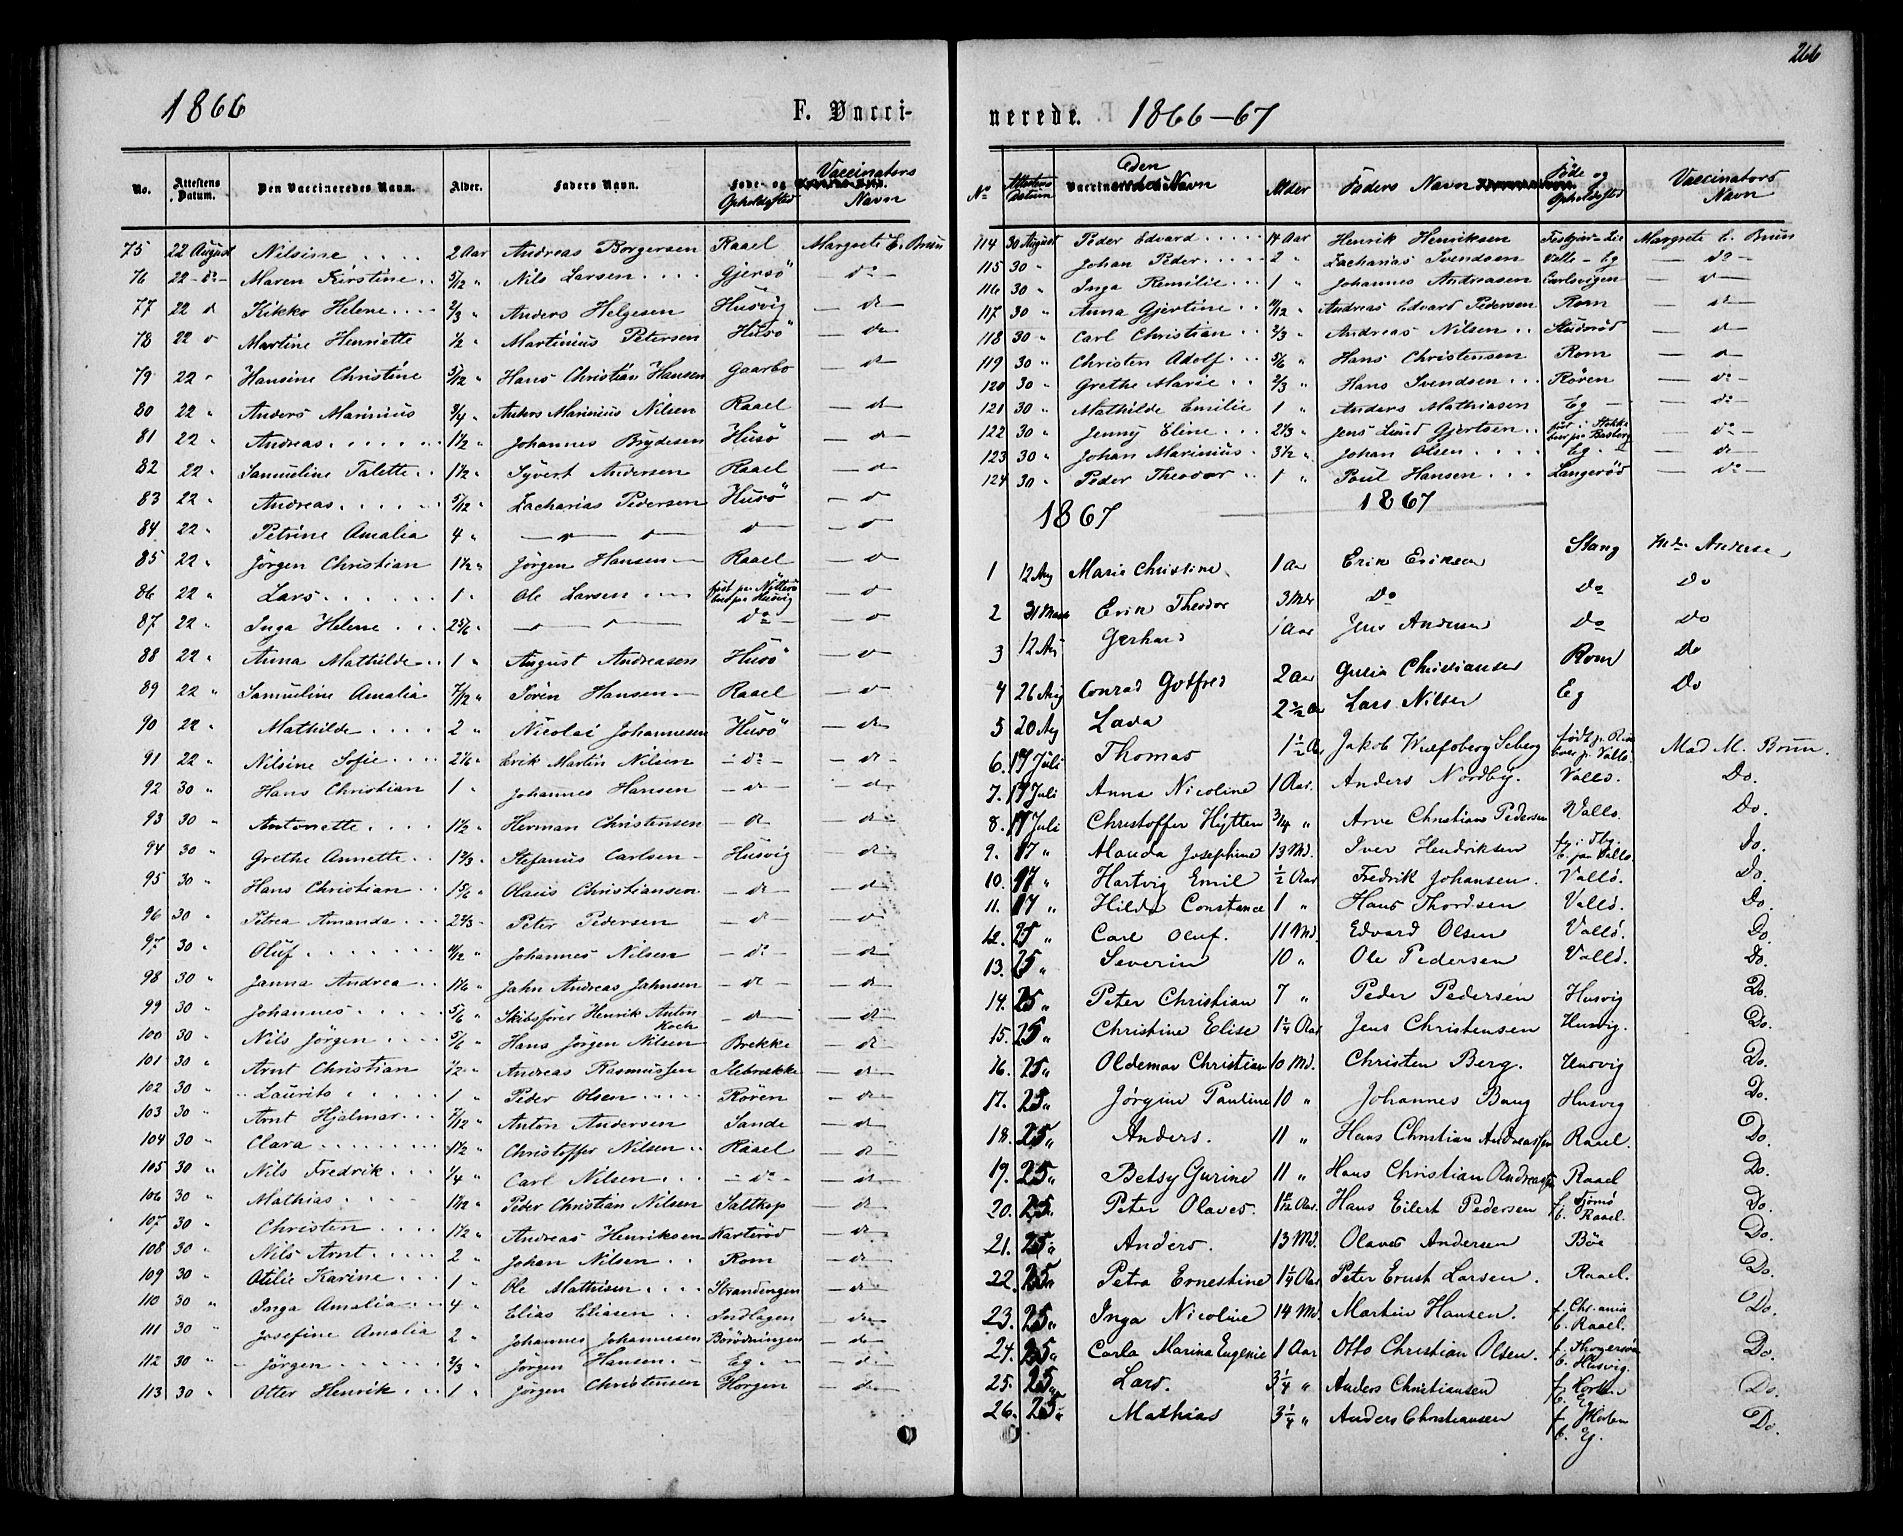 266
1866
F. Vacci-
No. Attestens Datum. Den Vaccineredes Navn. Alder. Faders Navn. Føde- og Opholdssted Vaccinators Navn
75 22 August Nilsine 2 Aar Andreas Borgersen Raael Margrete E. Brun
76 22 - do - Maren Kirstine 5/12 " Nils Larsen Gjersö - do -
77 22 d Kikko Helene 2/3 " Anders Helgesen Husvig - do -
78 22 " Martine Henriette 1/2 " Martinius Petersen Husö - do -
79 22 " Hansine Christine 5/12 " Hans Christian Hansen Gaarbo - do -
80 22 " Anders Marinius 3/4 " Anders Marinius Nilsen Raael - do -
81 22 " Andreas 1 1/2 " Johannes Brydesen Husö - do -
82 22 " Samueline Talette 1 1/2 " Syvert Andersen Raael - do -
83 22 " Andreas 5/12 " Zacharias Pedersen Husö - d -
84 22 " Petrine Amalia 4 " - d - d - d - d -
85 22 " Jörgen Christian 1 1/2 " Jörgen Hansen Raael - d -
86 22 " Lars 1 " Ole Larsen föd paa Nötterö boer paa Husvig - d -
87 22 " Inga Helene 2 5/6 " - d - d - do - - d -
88 22 " Anna Mathilde 1 " August Andreasen Husö - d -
89 22 " Samueline Amalia 7/12 " Sören Hansen Raael - d -
90 22 " Mathilde 2 " Nicolai Johannesen Husö - do -
91 22 " Nilsine Sofie 2 1/6 " Erik Martin Nilsen - do - - do -
92 30 " Hans Christian 1 " Johannes Hansen - do - - do -
93 30 " Antonette 1 1/2 " Herman Christensen - do - - do -
94 30 " Grethe Annette 1 2/3 " Stefanus Carlsen Husvig - do -
95 30 " Hans Christian 1 5/6 " Olaus Christiansen - do - - do -
96 30 " Petrea Amanda 2 2/3 " Peter Pedersen - d - - d -
97 30 " Oluf 11/12 " Johannes Nilsen - do - - do -
98 30 " Janna Andrea 1 1/6 " Jahn Andreas Jahnsen - do - - do -
99 30 " Johannes 5/6 " Skibsfører Henrik Anton Koch - do - - do -
100 30 " Nils Jörgen 5/6 " Hans Jörgen Nilsen Brekke - do -
101 30 " Arnt Christian 1/2 " Andreas Rasmussen Ilebrække - do -
102 30 " Laurits 1 " Peder Olsen Rören - do -
103 30 " Arnt Hjalmar 7/12 " Anton Andersen Sande - do -
104 30 " Clara 1 1/2 " Christoffer Nilsen Raael - do -
105 30 " Nils Fredrik 1/4 " Carl Nilsen - do - - do -
106 30 " Mathias Peder Christian Nilsen Saltkop - do -
107 30 " Christen 1 1/2 " Andreas Henriksen Karteröd - do -
108 30 " Nils Arnt 2 " Johan Nilsen Rom - do -
109 30 " Otilie Karine 1 " Ole Mathisen Strandengen - do -
110 30 " Inga Amalia 4 " Elias Eliasen Indlagen - do -
111 30 " Josefine Amalia 2 " Johannes Johannesen Börödningen - do -
112 30 " Jörgen 2/3 " Jörgen Hansen Eg - do -
113 30 " Otter Henrik 1 " Jörgen Christensen Horgen - do -
nerede. 1866-67
No Attestens Datum Den Vaccineredes Navn Alder Faders Navn Føde og Opholdssted Vaccinators Navn
114 30 August Peder Edvard Aar Henrik Henriksen Margrete E. Brun
115 30 " Johan Peder 2 " Zacharias Svendsen Valle - Eg - do -
116 30 " Inga Remilie 1 " Johannes Andreasen Carlsvigen - d -
117 30 " Anna Gjertine 11/12 " Andreas Edvard Pedersen Rom - do -
118 30 " Carl Christian 2/3 " Andreas Nilsen - d -
119 30 " Christen Adolf 5/6 " Hans Christensen Rom - d -
120 30 " Grethe Marie 2/3 " Hans Svendsen Rören - do -
121 30 " Mathilde Emilie 1 " Anders Mathiasen Eg - - do -
122 30 " Jenny Eline 2 1/3 " Jens Lund Gjertsen föd i Stokke boer paa Basberg - do -
123 30 " Johan Marinius 3 1/2 " Johan Olsen Eg - do -
124 30 " Peder Theodor 1 " Poul Hansen Langeröd - do -
1867 1867
1 12 Aug Marie Christine 1 Aar Erik Eriksen Stang Andersen
2 31 Marts Erik Theodor 3 Mdr Do Do Do
3 12 Aug Gerhard 1 Aar Jens Andersen Do Do
4 26 Aug Conrad Gotfred 2 Aar Christiansen Rom Do
5 20 Aug Lava 2 1/2 Aar Lars Nilsen Eg Do
6. 17 Juli Thomas 1 1/2 Aar Jakob Wulfsberg Seberg født p. boer p. Vallö. Mad M. Brun.
7. 17 Juli Anna Nicoline 1 Aar. Anders Nordby. Vallö. Do.
8. 17 Juli Christoffer Hytten 3/4 " Arne Christians Pedersen Vallö. Do.
9. 17 " Manda Josephine 13 Md. Iver Hendriksen f. i Tbg. b. paa Vallö. Do.
10. 17 " Hartvig Emil 1/2 Aar. Fredrik Johansen. Vallö. Do.
11. 17 " Hilda Constance 1 " Hans Thordsen Vallö. Do.
12. 25 " Carl Oluf. 11 Md. Edvard Olsen Vallö. Do.
13. 25 " Severin 10 " Ole Pedersen Vallö. Do.
14. 25 " Peter Christian 7 " Peder Pedersen Husvig Do.
15. 25 " Christine Elise 1 1/4 Aar. Jens Christensen Husvig. Do.
16. 25 " Oldemar Christian 10 Md. Christen Berg. Husvig Do.
17. 25 " Jørgine Pauline 10 " Johannes Bang Husvig Do.
18. 25 " Anders. 11 " Hans Christian Andreassen Raael. Do.
19. 25 " Betsy Gurine 11 " Hans Christian Andreassen Raael Do.
20. 25 " Peter Olaves. Aar. Hans Eilert Pedersen f. Tjømø b. Raael. Do.
21. 25 " Anders. 13 Md. Olaves Andersen Böe Do.
22. 25 " Petra Ernestine 1 1/4 Aar Peter Ernst Larsen. Raael. Do.
23. 25 " Inga Nicoline 14 Md. Martin Hansen. f. Chr.ania b. Raael. Do.
24. 25 " Carla Marina Eugenie 1 Aar Otto Christian Olsen. b. Husvig. Do.
25. 25 " Lars. 3 1/4 " Anders Christiansen f. Horten b. Eg Do.
26. 25 " Mathias 3 1/4 " Anders Christiansen f. Horten b. Eg. Do.